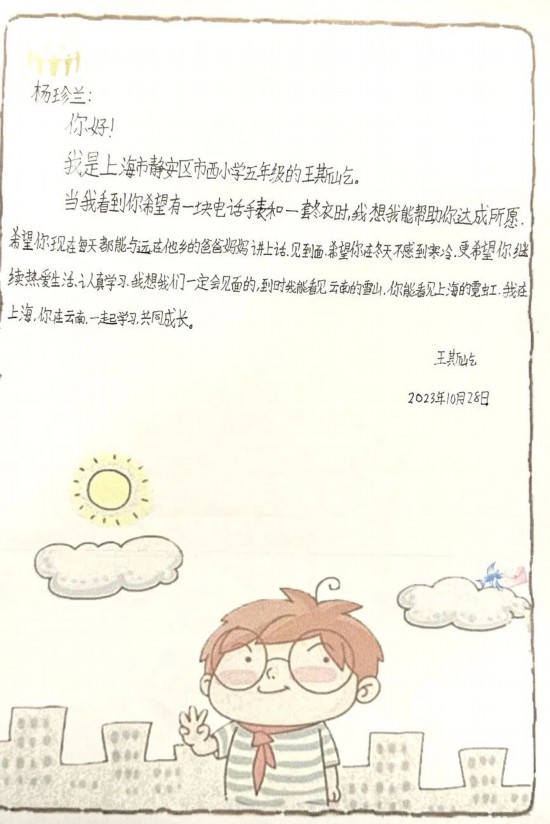 杨珍兰：
你好！
我是上海市静安区市西小学五年级的王斯屹。
当我看到你希望有一块电话手表和一套冬衣时，我想我能帮助你达成所愿。
希望你现在每天都能与远在他乡的爸爸妈妈讲上话、见到面，希望你在冬天不感到寒冷，更希望你继
续热爱生活、认真学习。我想我们一定会见面的，到时我能看见云南的雪山，你能看见上海的霓虹。我在
上海，你在云南，一起学习，共同成长。
王斯屹
2023年10月28日